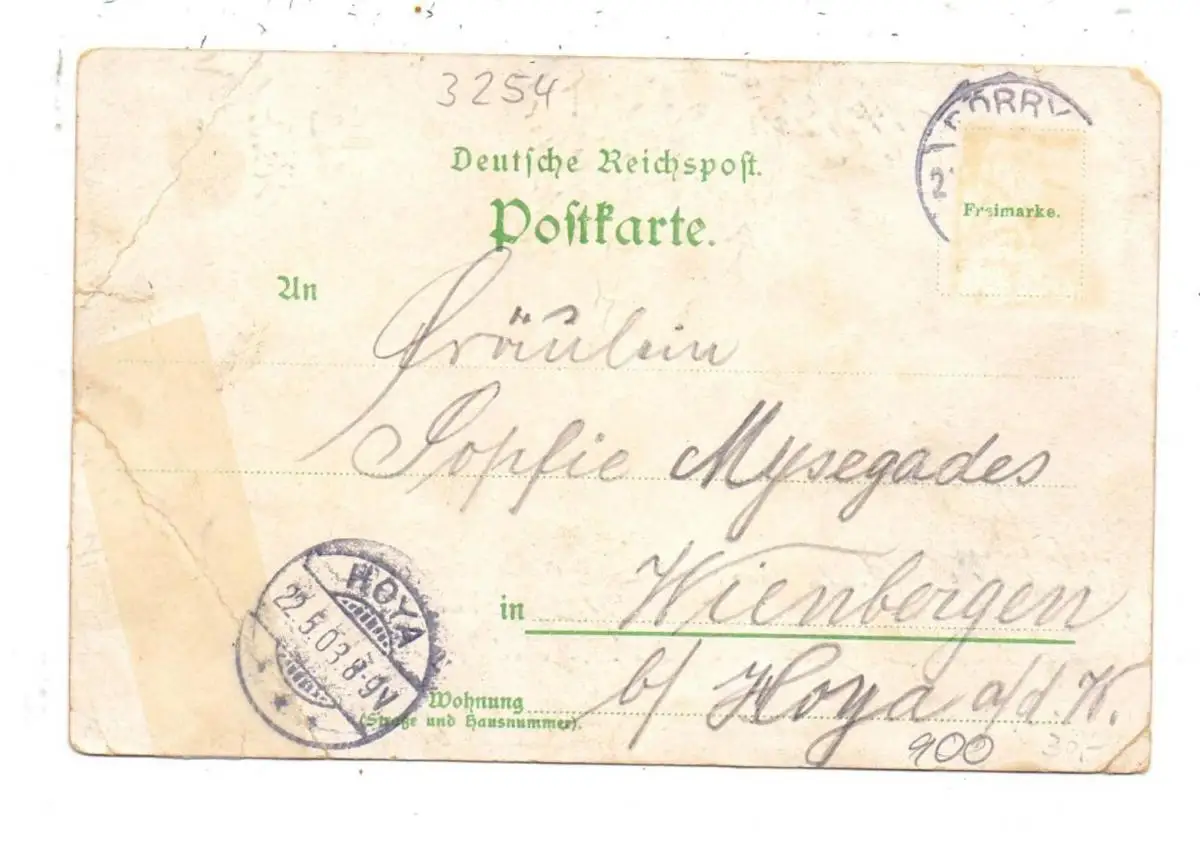 3254
Deutsche Reichspost.
Postkarte.
Freimarke.
An
Fräulein
Sophie Mysegades
in Wienbergen
b/ Hoya a/d. W.
Wohnung
(Straße und Hausnummer).
HOYA
22.5.03.8-9V
900
30,-